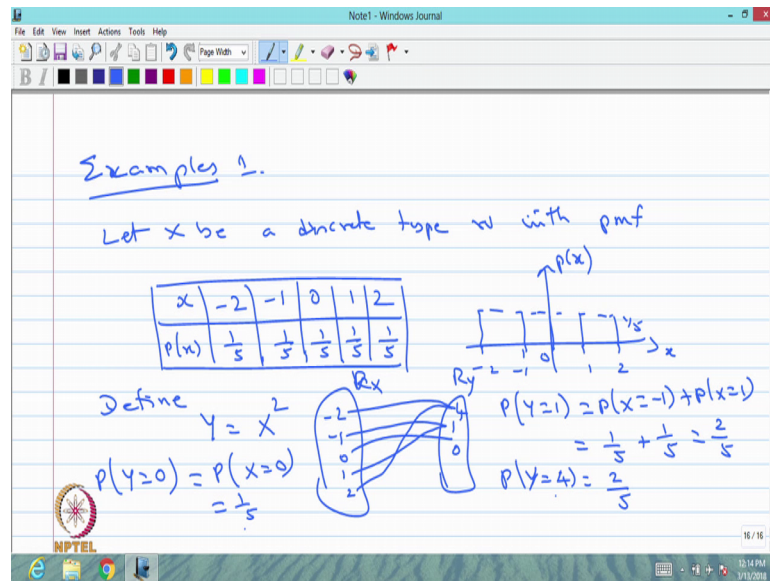 Note1 - Windows Journal
File Edit View Insert Actions Tools Help
Page Width
B I
Examples 1.
Let X be a discrete type rv with pmf
x | -2 | -1 | 0 | 1 | 2
p(x) | 1/5 | 1/5 | 1/5 | 1/5 | 1/5
p(x)
1/5
-2 -1 0 1 2 x
Define
Y = X²
P(Y=0) = P(X=0)
= 1/5
Rx
-2
-1
0
1
2
Ry
4
1
0
P(Y=1) = P(X=-1) + P(X=1)
= 1/5 + 1/5 = 2/5
P(Y=4) = 2/5
NPTEL
16 / 16
12:14 PM
7/13/2018